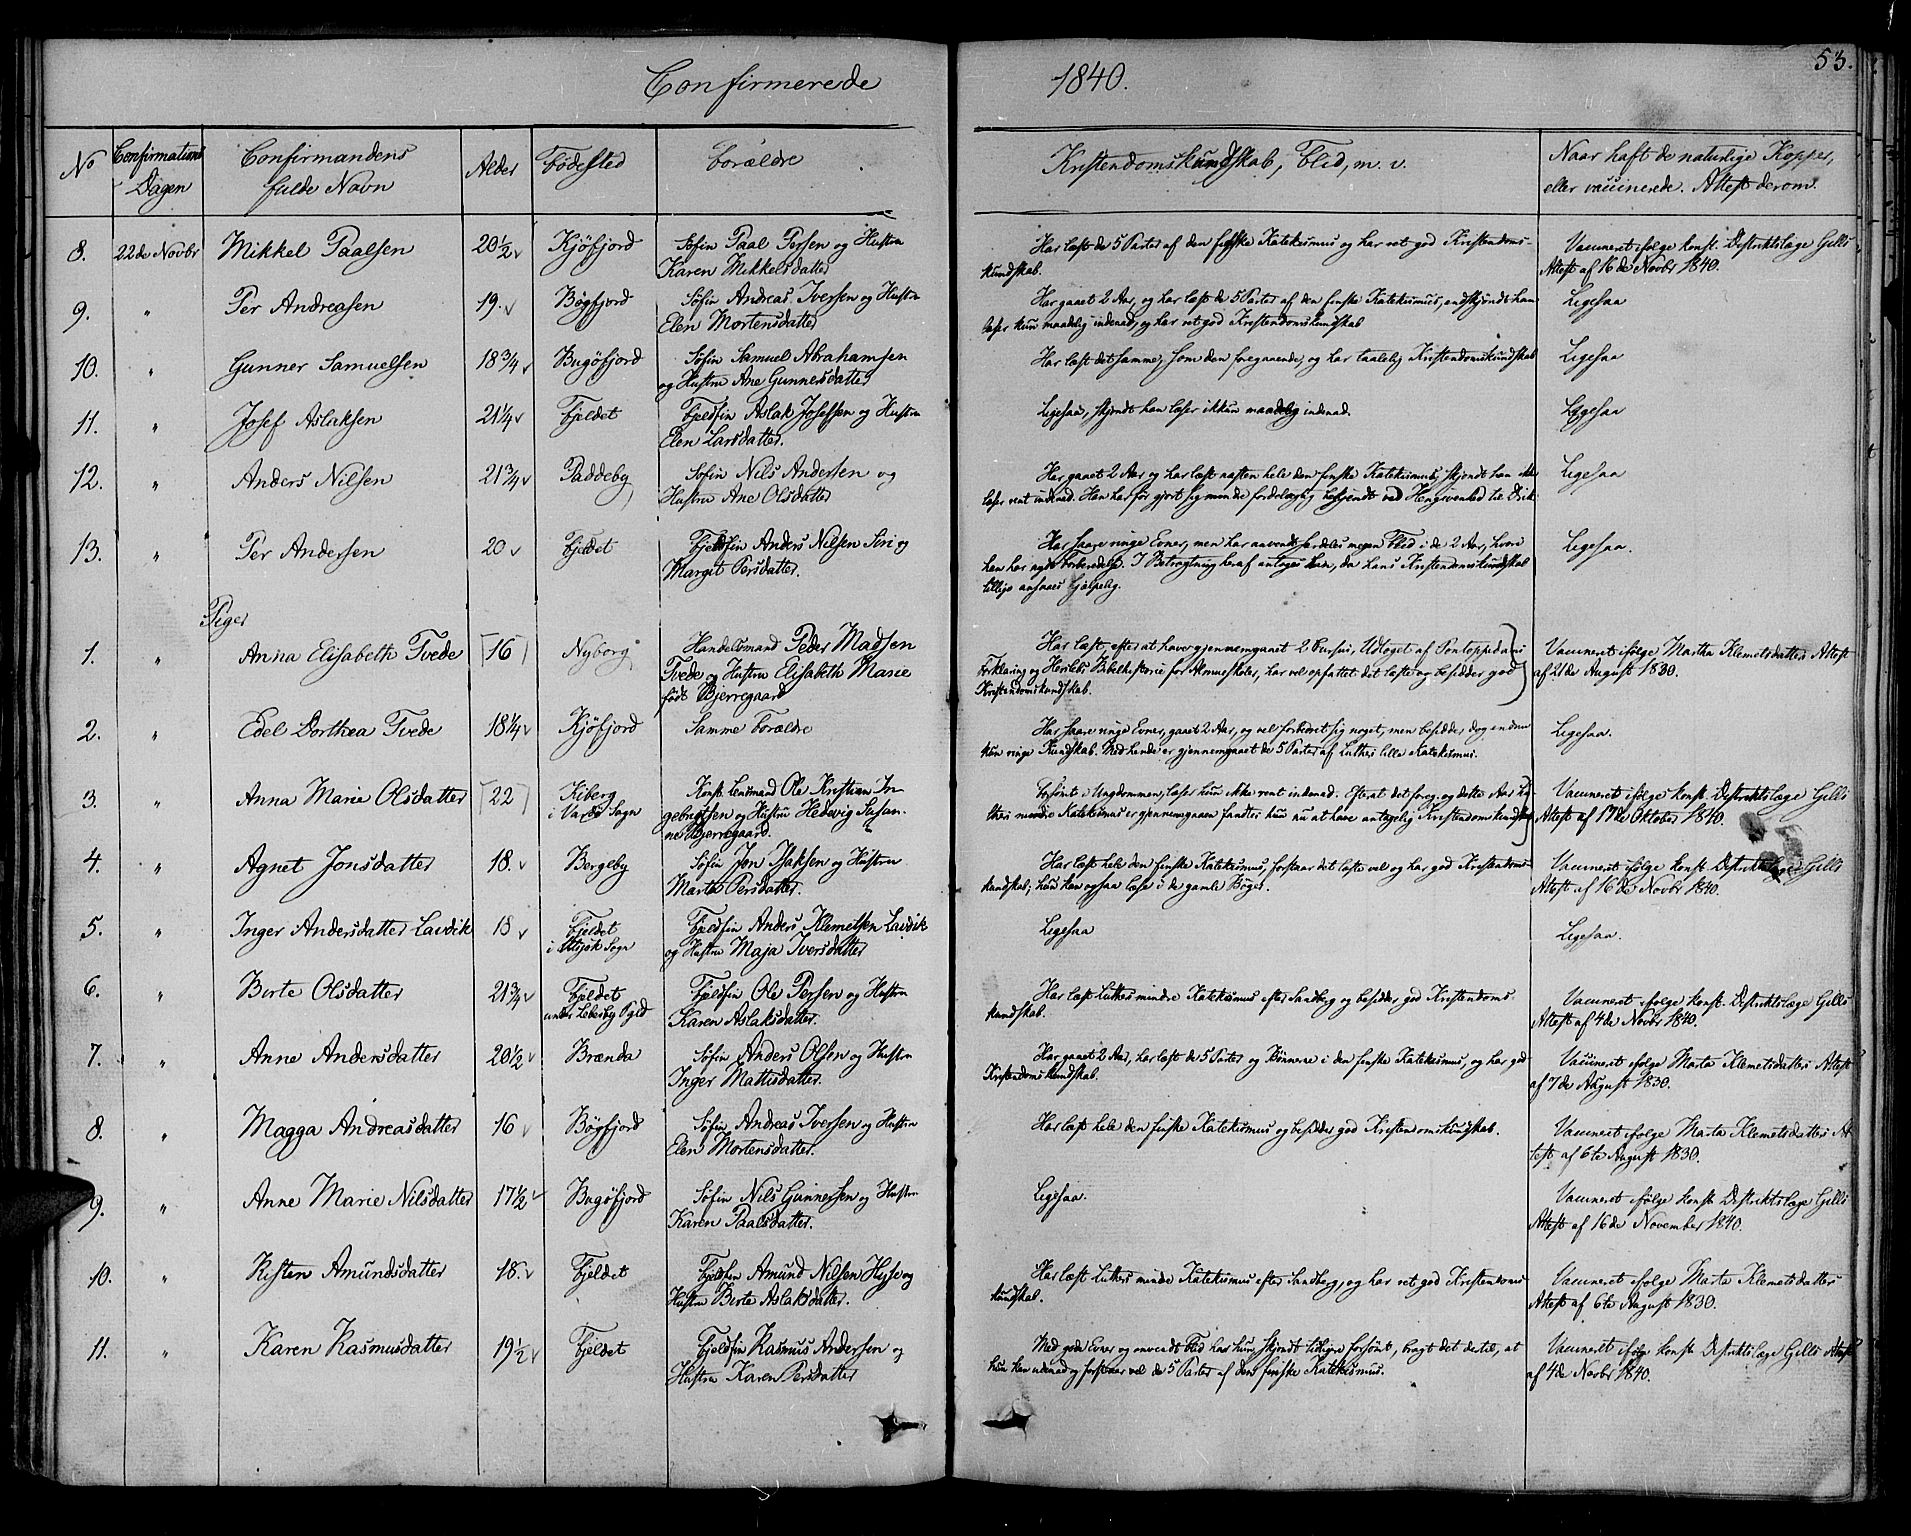 53.
Confirmerede 1840.
No Confirmations Dagen Confirmandens fulde Navn Alder Fødested Forældre Kristendomskundskab, Flid, m. v. Naar haft de naturlige Kopper, eller vaccinerede. Attest derom.
8. 22de Novbr Mikkel Paalsen 20½ Kjøfjord Søfin Paal Persen og Hustru
Karen Mikkelsdatter
Har læst de 5 Parter af den finske Katekismus og har ret god Kristendoms-
kundskab.
Vaccineret ifølge konst. Destriktslæge Gills
Attest af 16de Novbr 1840.
9. " Per Andreasen 19. Bøgfjord Søfin Andreas Iversen og Hustru
Elen Mortensdatter
Har gaaet 2 Aar, og har læst de 5 Parter af den finske Katekismus, endskjøndt han
læser kun maadelig indenad, og har ret god Kristendomskundskab
Ligesaa
10. " Gunner Samuelsen 18¾ Bugøfjord Søfin Samuel Abrahamsen
og Hustru Ane Gunnersdatter
Har læst det samme, som den foregaaende, og har taalelig Kristendomskundskab
Ligesaa
11. " Josef Aslaksen 21¼ Fjeldet Fjeldfin Aslak Josefsen og Hustru
Elen Larsdatter.
Ligesaa, skjøndt han læser ikkun maadelig indenad.
Ligesaa
12. " Anders Nilsen 21¾ Paddeby Søfin Nils Andersen og
Hustru Ane Olsdatter
Har gaaet 2 Aar og har læst næsten hele den finske Katekismus, skjøndt han ikke
læser rent indenad. Han har før gjort sig mindre fordelagtig bekjendt ved Hengivenhed til Drik.
Ligesaa
13. " Per Andersen 20 Fjeldet Fjeldfin Anders Nilsen Siri og
Margit Persdatter.
Har saare ringe Evner, men har anvendt særdeles megen Flid i de 2 Aar, hvori
han har nydt Forberedelse. I Betragtning heraf antoges han, da hans Kristendomskundskab
tillige ansaaes hjælpelig.
Ligesaa.
Piger
1. " Anna Elisabeth Tvede 16 Nyborg Handelsmand Peder Madsen
Tvede og Hustru Elisabeth Marie
født Bjerregaard
Har læst, efter at have gjennemgaaet 2 Cursus, Udtoget af Pontoppidans
Forklaring og Herslebs Bibelhistorie for Almueskoler, har vel opfattet det læste og besidder god
Kristendomskundskab.
Vaccineret ifølge Martha Klemetsdatters Attest
af 21de August 1830.
2. " Edel Dorthea Tvede 18¼ Kjøfjord Samme Forældre
Har saare ringe Evner, gaaet 2 Aar, og vel forbedret sig noget, men besidder dog endnu
kun ringe Kundskab. Med hende er gjennemgaaet de 5 Parter af Luthers lille Katekismus.
Ligesaa.
3. " Anna Marie Olsdatter 22 Kiberg
i Vardø Sogn
Konst. Lensmand Ole Kristian In-
gebrigtsen og Hustru Hedevig Susan-
ne Bjerregaard.
Forsømt i Ungdommen, læser hun ikke rent indenad. Efterat det foreg. og dette Aar Lu-
thers mindre Katekismus er gjennemgaaen fandtes hun nu at have antagelig Kristendomskundskab
Vaccineret ifølge konst. Destriktslæge Gills
Attest af 17de Oktober 1840.
4. " Agnet Jonsdatter 18. Bergeby Søfin Jon Isaksen og Hustru
Marte Persdatter.
Har læst hele den finske Katekismus, forstaaer det læste vel og har god Kristendoms-
kundskab; hun kan ogsaa læse i de gamle Bøger.
Vaccineret ifølge konst. Destriktslæge Gills
Attest af 16de Novbr 1840.
5. " Inger Andersdatter Lavdik 18 Fjeldet
i Utsjok Sogn
Fjeldfin Anders Klemetsen Lavdik
og Hustru Maja Iversdatter
Ligesaa
Ligesaa.
6. " Birte Olsdatter 21¾ Fjeldet
under Lebesby Pgld
Fjeldfin Ole Persen og Hustru
Karen Aslaksdatter.
Har læst Luthers mindre Katekismus efter Sandberg og besidder god Kristendoms-
kundskab.
Vaccineret ifølge konst. Destriktslæge Gills
Attest af 4de Novbr 1840.
7. " Anne Andersdatter 20½ Brænda Søfin Anders Olsen og Hustru
Inger Mattisdatter.
Har gaaet 2 Aar, har læst de 5 Parter og Bønnerne i den finske Katekismus, og har god
Kristendomskundskab.
Vaccineret ifølge Marta Klemetsdatters Attest
af 7de August 1830.
8. " Magga Andreasdatter 16 Bøgfjord Søfin Andreas Iversen og Hustru
Elen Mortensdatter.
Har læst hele den finske Katekismus og besidder god Kristendomskundskab.
Vaccineret ifølge Marta Klemetsdatters At-
test af 6te August 1830.
9. " Anne Marie Nilsdatter 17½ Bugøfjord Søfin Nils Gunnersen og Hustru
Karen Paalsdatter.
Ligesaa.
Vaccineret ifølge konst. Destriktslæge Gills
Attest af 16de November 1840.
10. " Kisten Amundsdatter 18. Fjeldet Fjeldfin Amund Nilsen og
Hustru Birte Aslaksdatter.
Har læst Luthers mindre Katekismus efter Sandberg, og har ret god Kristendoms-
kundskab.
Vaccineret ifølge Marta Klemetsdatters
Attest af 6te August 1830.
11. " Karen Rasmusdatter 19½ Fjeldet Fjeldfin Rasmus Andersen og
Hustru Karen Persdatter
Med gode Evner og anvendt Flid har hun, skjøndt tidligere forsømt, bragt det dertil, at
hun kan udenad og forstaaer vel de 5 Parter af den finske Katekismus.
Vaccineret ifølge konst. Destriktslæge Gills Attest
af 4de Novbr 1840.